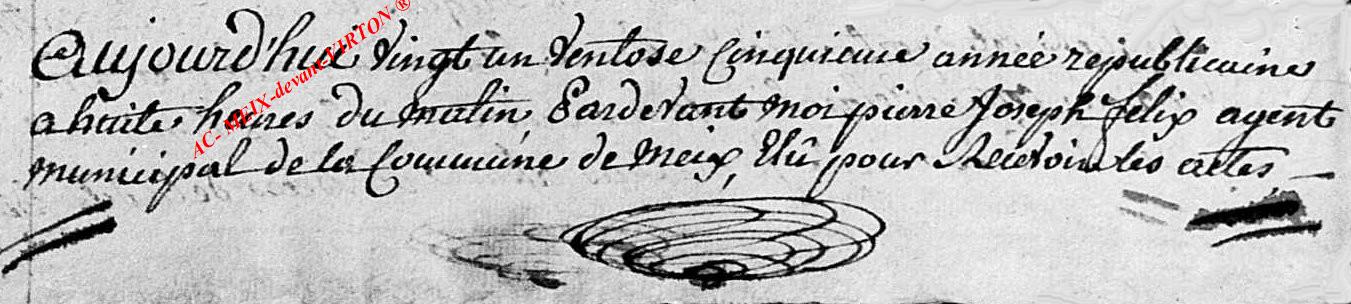 Aujourd'hui vingt un ventose cinquieme année republicaine
a huite heures du matin, Pardevant moi pierre Joseph felix agent
municipal de la Commune de Meix, Elû pour Recevoir les actes
AC- MEIX-devant-VIRTON ®